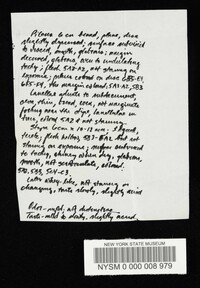 Pileus 6 cm broad, plane, disc
slightly depressed; surface subviscid
to viscid, smooth, glabrous; margin
decurved, glabrous, even to undulating
tacky; flesh 5A2-A3, not staining on
exposure; pileus colored on disc 6B5-E4,
6C5-E4, the margin colored 5A1-A2, 5B3
Lamellae adnate to subdecurrent,
close, thin, broad, even, not marginate
forking near the stipe, lamellulae in
tiers, colored 5A2 not staining
Stipe 6 cm x 10-12 mm, equal,
terete, flesh hollow, but not
staining on exposure; surface subviscid
to tacky, shining when dry, glabrous,
smooth, not scrobiculate, colored
5B2, 5B3, 5C4-C3
Latex whey-like, not staining or
changing, taste slowly, slightly acrid
Odor - mild, not distinctive
Taste - mild to slowly, slightly acrid,
NEW YORK STATE MUSEUM
NYSM 0 000 008 979